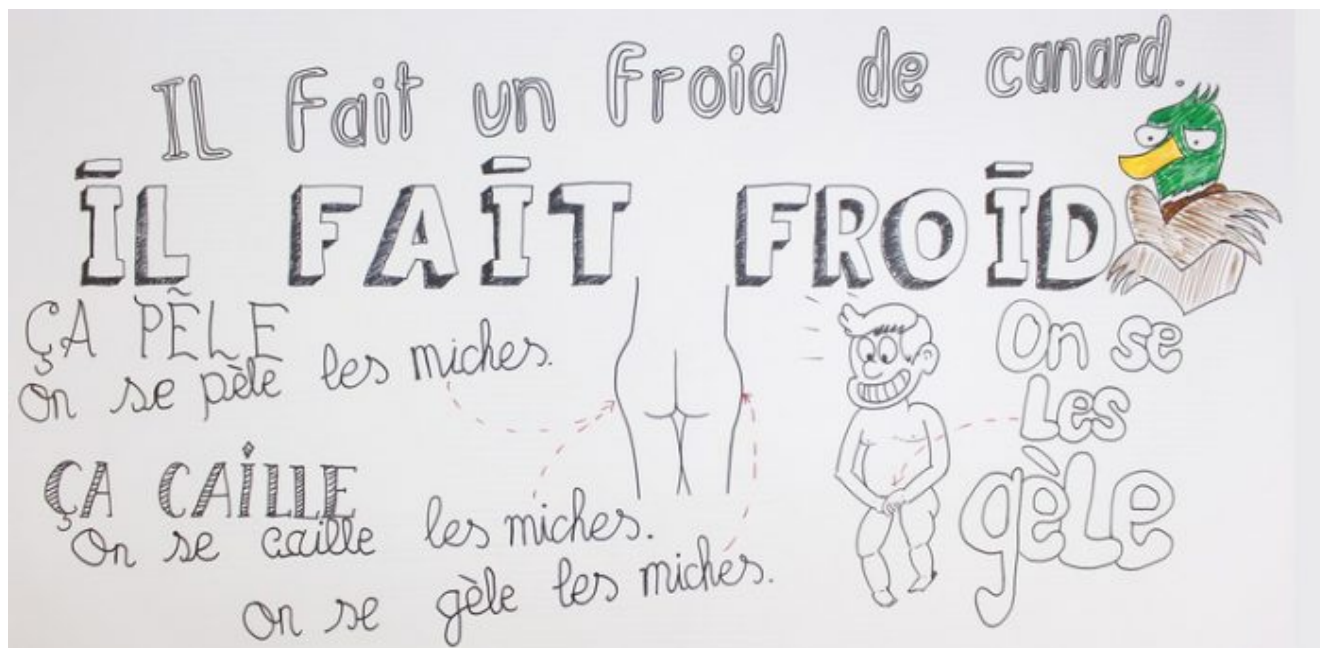 IL fait un froid de canard.
IL FAIT FROID
ÇA PÈLE
On se pèle les miches.
ÇA CAILLE
On se caille les miches.
on se gèle les miches.
On se
Les
gèle